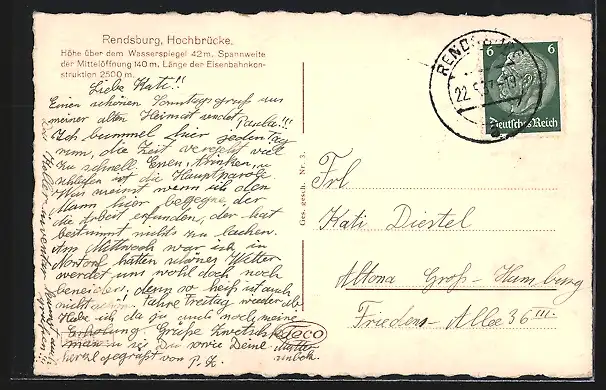 Rendsburg, Hochbrücke.
Höhe über dem Wasserspiegel 42 m. Spannweite
der Mittelöffnung 140 m. Länge der Eisenbahnkon-
struktion 2500 m.
Liebe Kati!!
Einen schönen Sonntagsgruß aus
meiner alten Heimat sendet
Paula!!!
Ich bummel hier jeden Tag
rum, die Zeit vergeht viel
zu schnell. Essen, trinken, u.
schlafen ist die Hauptparole.
Was meinst wenn ich den
Mann hier begegne, der
die Arbeit erfunden, der hat
bestimmt nichts zu lachen.
Am Mittwoch war ich in
Nortorf hatten schönes Wetter
werdet uns wohl doch noch
beneiden, denn so heiß ist auch
nicht schön. Fahre Freitag wieder ab
Habe ich da ja auch noch meine
Erholung. Grüße
Sie u Du sowie Deine Mutter
herzl gegrüßt von P.
Ges. gesch. Nr. 3.
Teco
RENDSBURG
22.5.37
6 6
Deutsches Reich
Frl
Kati Diestel
Altona Groß-Hamburg
Friedens-Allee 36 III.